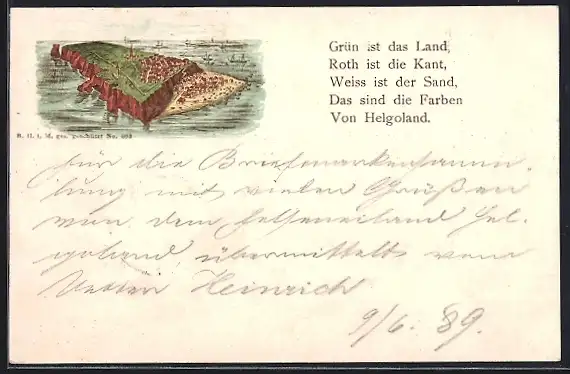 Grün ist das Land,
Roth ist die Kant,
Weiss ist der Sand,
Das sind die Farben
Von Helgoland.
R. H. i. M. ges. geschützt No. 403
für die Briefmarkensamm
lung mit vielen Grüßen
von dem Felseneiland Hel
goland übermittelt vom
Vetter Heinrich
9/6. 89.